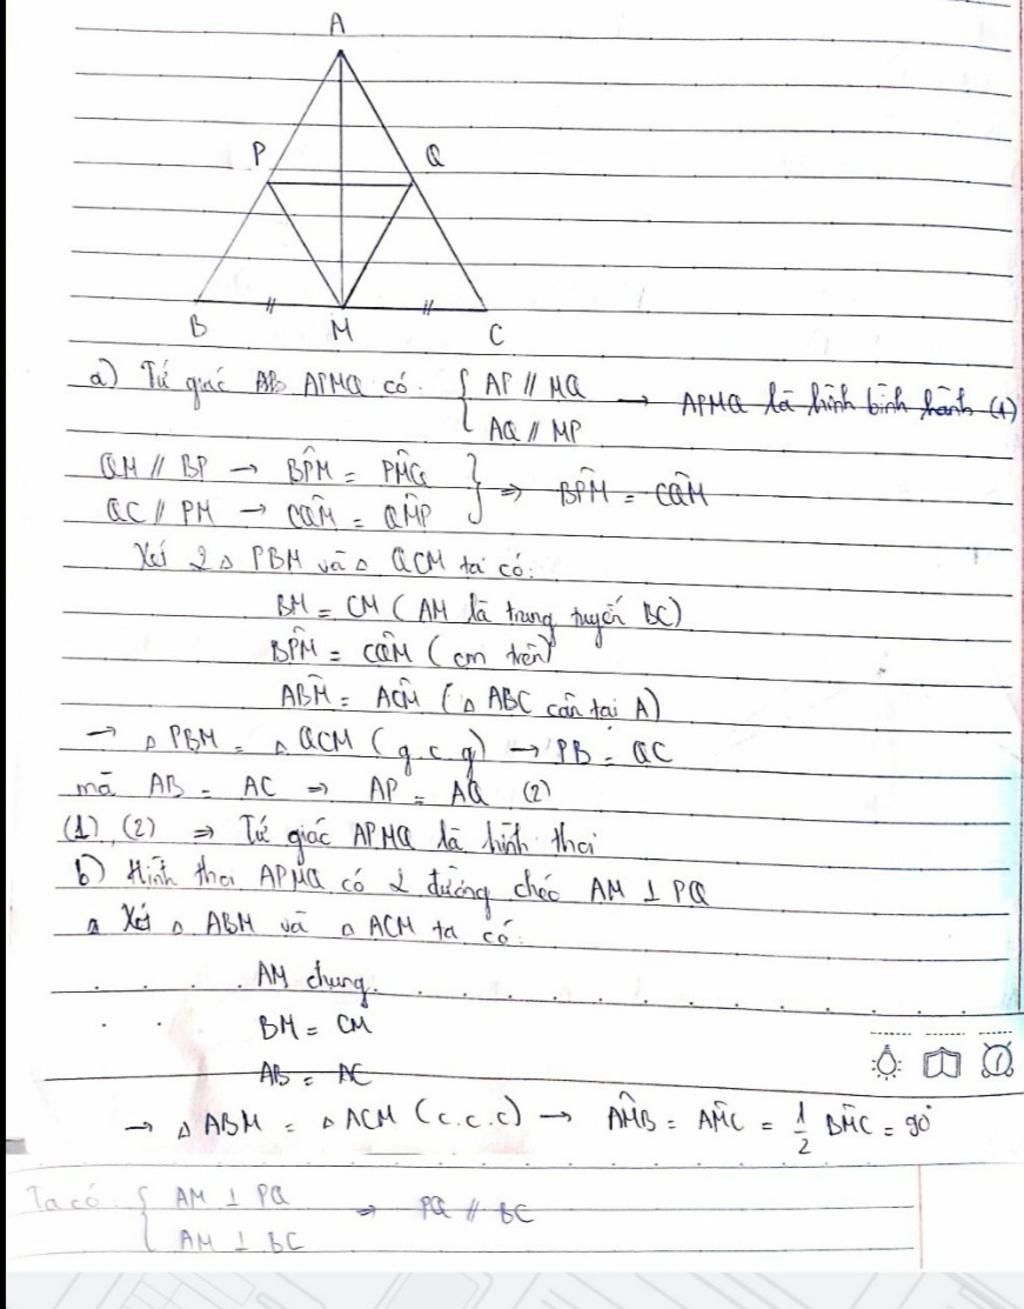 A
P
Q
B
M
C
a) Tứ giác APMQ có { AP // MQ → APMQ là hình bình hành (1)
AQ // MP
QM // BP → BP̂M = PM̂Q } ⇒ BP̂M = CQ̂M
QC // PM → CQ̂M = QM̂P
Xét 2 Δ PBM và Δ QCM ta có:
BM = CM ( AM là trung tuyến BC)
BP̂M = CQ̂M ( cm trên)
AB̂M = AĈM ( Δ ABC cân tại A)
→ Δ PBM = Δ QCM ( g.c.g) → PB = QC
mà AB = AC ⇒ AP = AQ (2)
(1), (2) ⇒ Tứ giác APMQ là hình thoi
b) Hình thoi APMQ có 2 đường chéo AM ⊥ PQ
Xét Δ ABM và Δ ACM ta có:
AM chung.
BM = CM
AB = AC
→ Δ ABM = Δ ACM (c.c.c) → AM̂B = AM̂C = 1/2 BM̂C = 90°
Ta có: { AM ⊥ PQ ⇒ PQ // BC
AM ⊥ BC